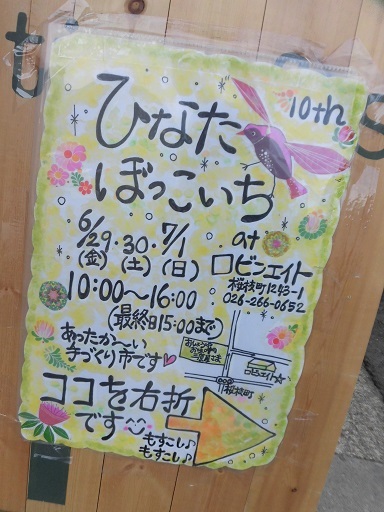 10th
ひなた
ぼっこいち
6/29・30・7/1
(金) (土) (日)
at
ロビンエイト
桜枝町1243-1
026-266-0652
10:00～16:00
(最終日15:00まで)
あったか〜い
手づくり市です♡
ロビンエイト
桜枝町
ココを右折
です
もすこし♪
もすこし♪